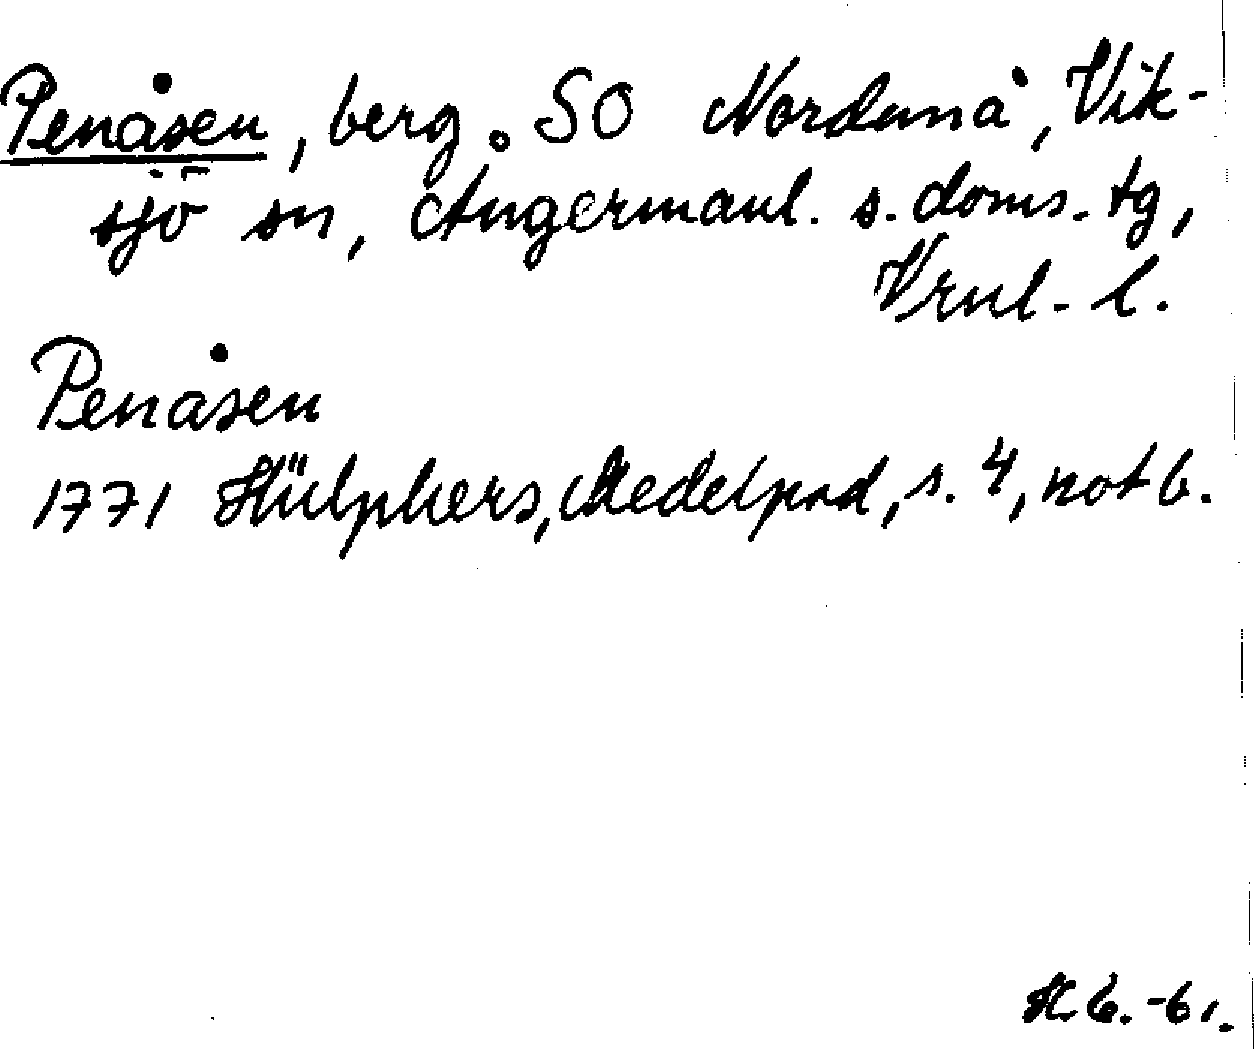 Penåsen, berg. SO Nordanå, Vik-
sjö sn, Ångermanl. s. doms. tg,
Vrnl. l.
Penåsen
1771 Hülphers, Medelpad, s. 4, not b.
H. G. -61.